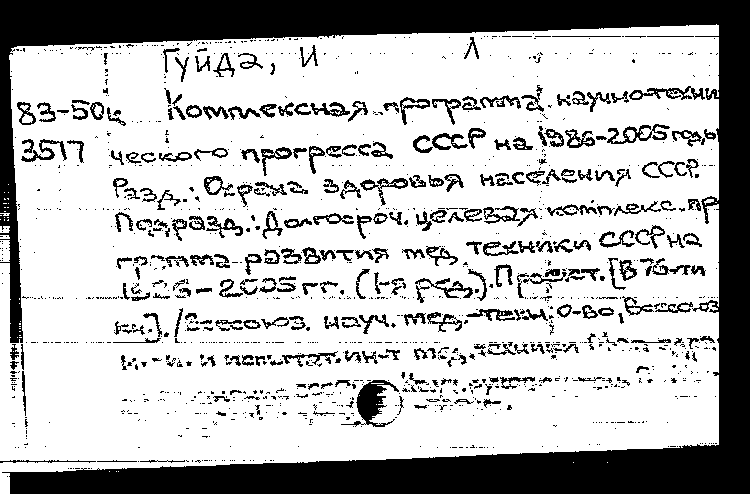 Гуйда, И Л
83-50к Комплексная программа научно-техни
3517 ческого прогресса СССР на 1986-2005 годы
Разд.: Охрана здоровья населения СССР.
Подразд.: Долгосроч. целевая комплекс. пр
грамма развития мед. техники СССР на
1986-2005 гг. (1-я ред.). Проект. [В 76-ти
кн.]. /Всесоюз. науч. мед.-техн. о-во, Всесоюз
н.-и. и испытат. ин-т мед. техники
Науч.